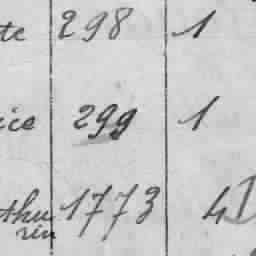 te 298 1
ice 299 1
thu 1773 4
rin